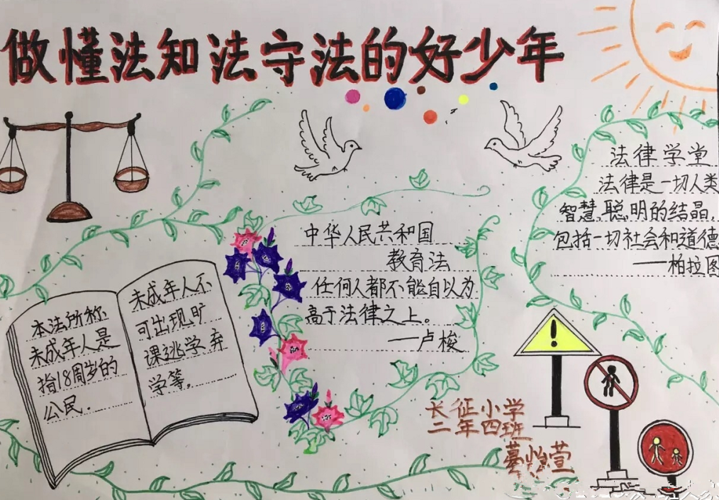 做懂法知法守法的好少年
法律学堂
法律是一切人类
智慧聪明的结晶，
包括一切社会和道德
——柏拉图
中华人民共和国
教育法
任何人都不能自以为
高于法律之上。
——卢梭
本法所称
未成年人是
指18周岁的
公民．
未成年人不
可出现旷
课逃学弃
学等。
长征小学
二年四班